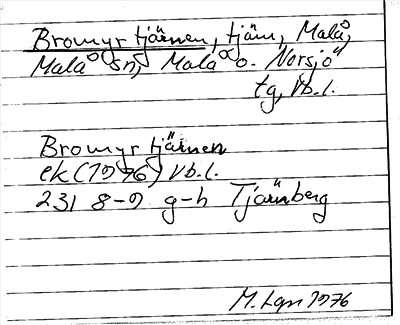 Bromyrtjärnen, tjärn, Malå,
Malå sn, Malå o. Norsjö
tg, Vb.l.
Bromyrtjärnen
ek (1976) Vb.l.
231 8-9 g-h Tjärnberg
M. Lgn 1976